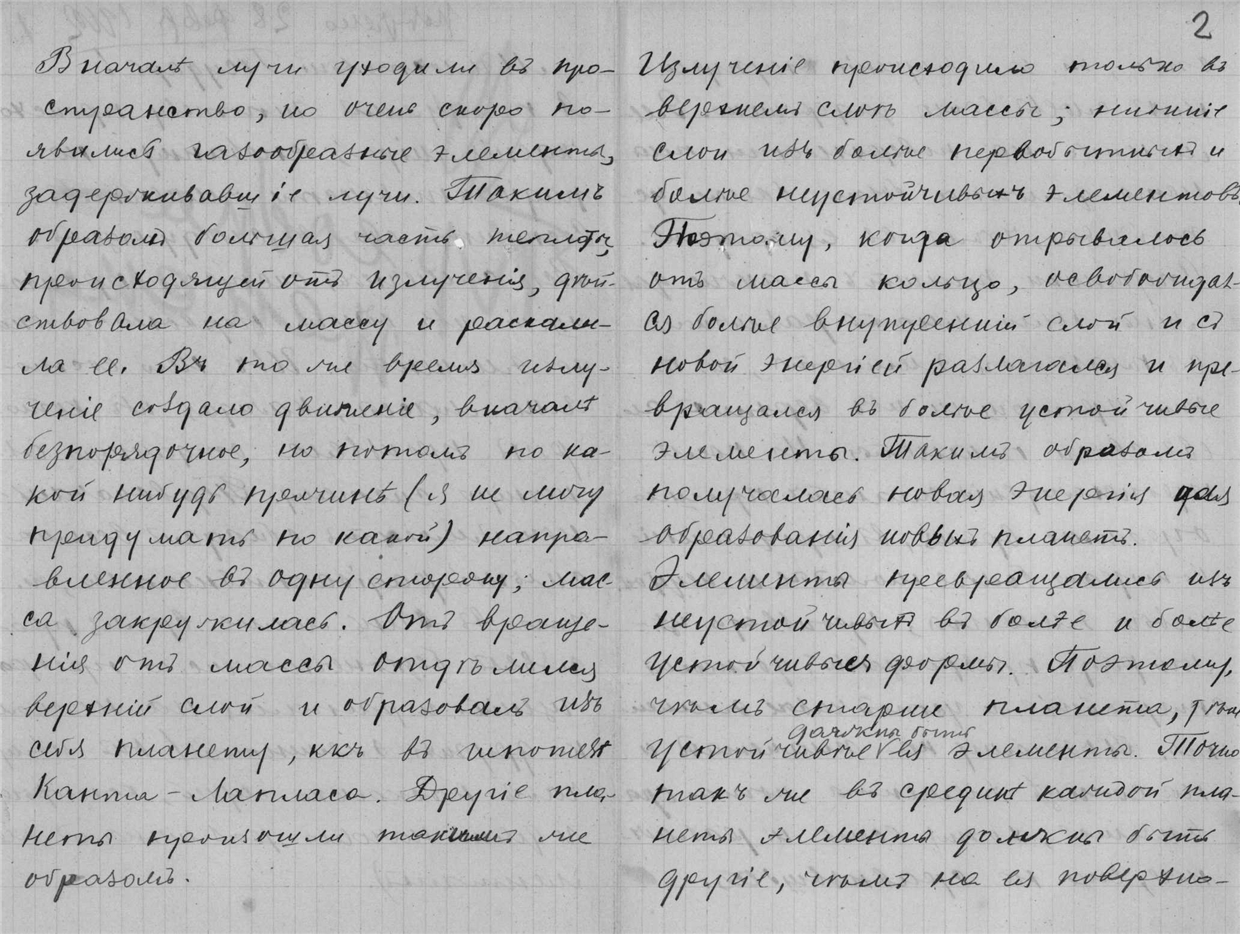 2
Вначалѣ лучи уходили въ про-
странство, но очень скоро по-
явились газообразные элементы,
задерживавшіе лучи. Такимъ
образомъ большая часть теплоты,
происходящей отъ излученія, дѣй-
ствовала на массу и раскали-
ла ее. Въ то же время излу-
ченіе создало движеніе, вначалѣ
безпорядочное, но потомъ по ка-
кой нибудь причинѣ (я не могу
придумать по какой) напра-
вленное въ одну сторону; мас-
са закружилась. Отъ враще-
нія отъ массы отдѣлился
верхній слой и образовалъ изъ
себя планету, ккъ въ гипотезѣ
Канта-Лапласа. Другіе пла-
неты произошли такимъ же
образомъ.
Излученіе происходило только въ
верхнемъ слоѣ массы; нижніе
слои изъ болѣе первобытныхъ и
болѣе неустойчивыхъ элементовъ.
Поэтому, когда отрывалось
отъ массы кольцо, освобождал-
ся болѣе внутренній слой и съ
новой энергіей разлагался и пре-
вращался въ болѣе устойчивые
элементы. Такимъ образомъ
получалась новая энергія для
образованія новыхъ планетъ.
Элементы превращались изъ
неустойчивыхъ въ болѣе и болѣе
устойчивыя формы. Поэтому,
чѣмъ старше планета, тѣмъ
должны быть
устойчивѣе ея элементы. Точно
такъ же въ срединѣ каждой пла-
неты элементы должны быть
другіе, чѣмъ на ея поверхно-